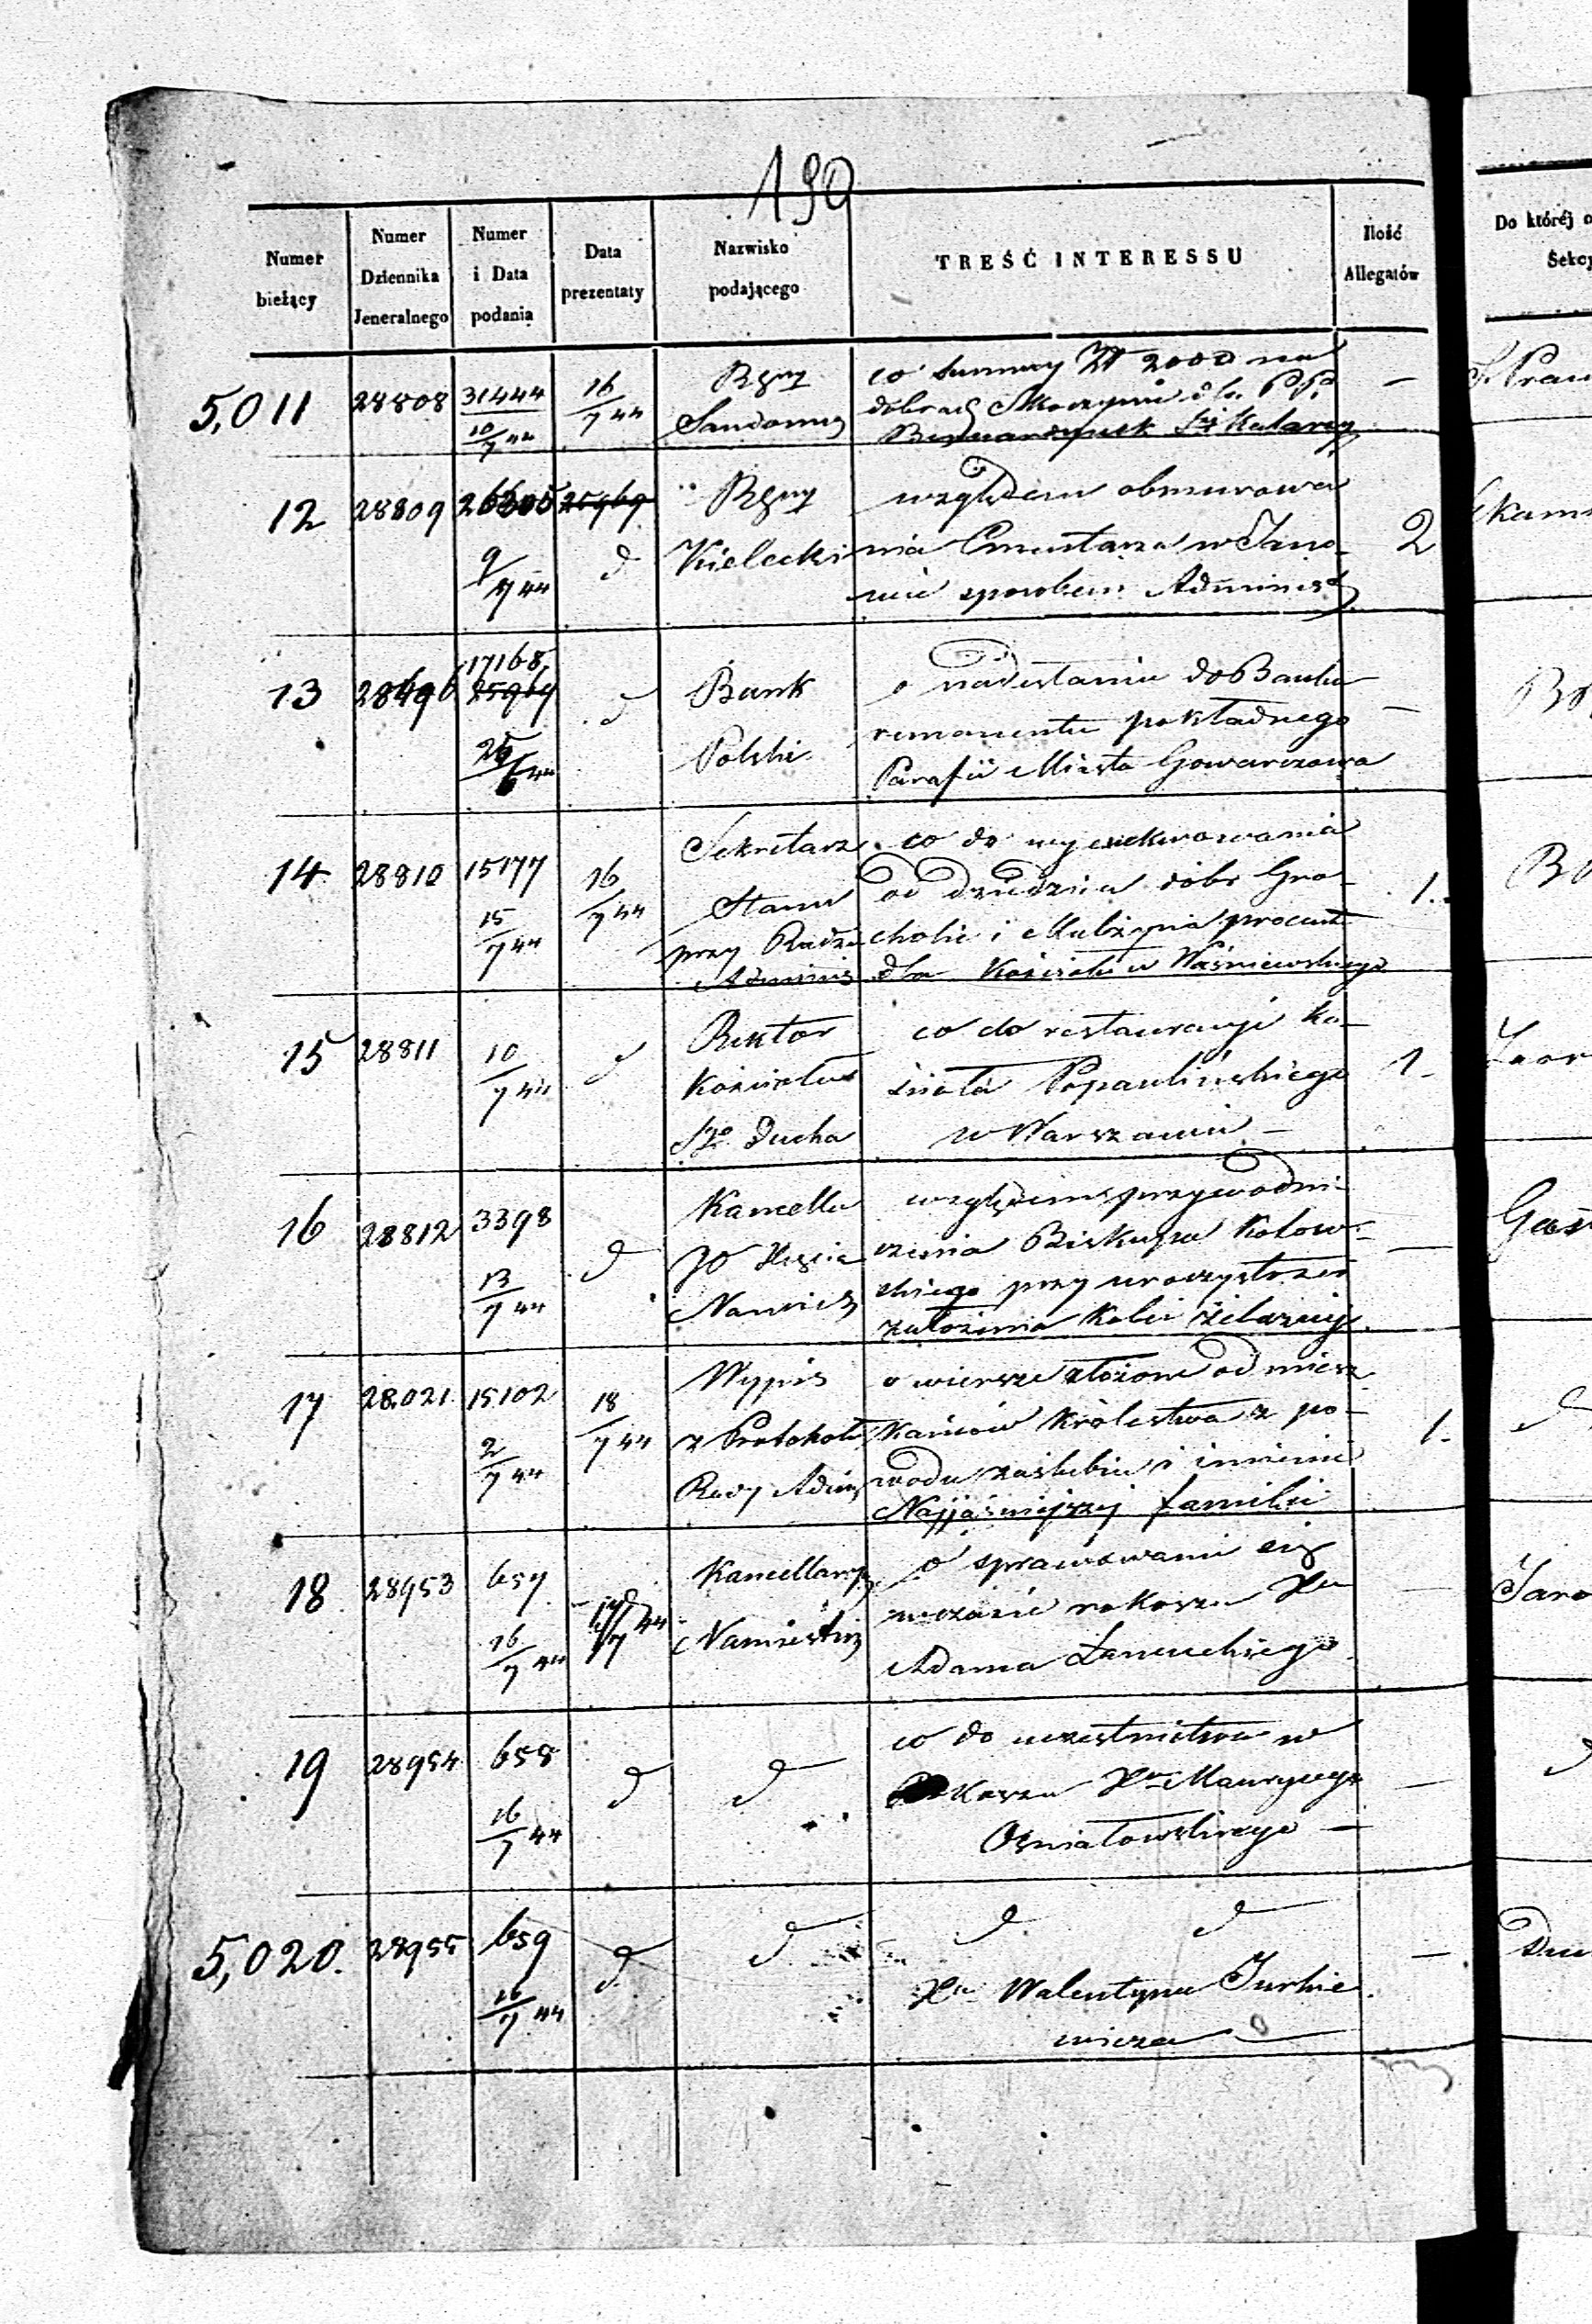 190
Numer bieżący
Numer Dziennika Jeneralnego
Numer i Data podania
Data prezentaty
Nazwisko podającego
TREŚĆ INTERESSU
Ilość Allegatów
Do któréj
Sekcy
5,011 28808 31444 10/7 44 16/7 44
co summy Zł 2000 na
dobrach
12 28809 9/7 44 d Kielecki 2
względem obmurowa
nia Cmentarza w Jano-
wie sposobem Adminis
13 28496 17168 25969 d Bank Polski –
o nadesłanie do Banku
remanentu pokładnego
Parafii Miasta Gowarczowa
14 28810 15177 15/7 44 16/7 44 Sekretarz Stanu przy Radzie Adminis 1.
co do wyexekwowania
od dziedzica dóbr Gro-
cholic i procent
dla Kościoła w Waśniewskiego
15 28811 10/7 44 d Rektor Kościoła Sgo Ducha 1.
co do restauracyi ko-
ścioła Popaulińskiego
w Warszawie –
16 28812 3398 13/7 44 d Kancella JO Xięcia Namies –
względem przewodni-
czenia Biskupa Kotow-
skiego przy uroczystości
założenia Kolei żelaznéj
17 28.021 15102 2/7 44 18/7 44 Wypis z Protokołu Rady Admin 1.
o wiersze złożone od miesz-
kańców Królestwa z po-
wodu zaślubin i imienin
Najjaśniejszej familii
18 28953 657 16/7 44 Kancellarya Namiestn –
o sprawowaniu się
w czasie rokoszu Xa
Adama
19 28954 658 16/7 44 d d –
co do uczestnictwa w
Rokoszu Xa Maurycego
5,020. 28955 659 16/7 44 d d –
d d
Xa Walentyna Jurkie
wicza